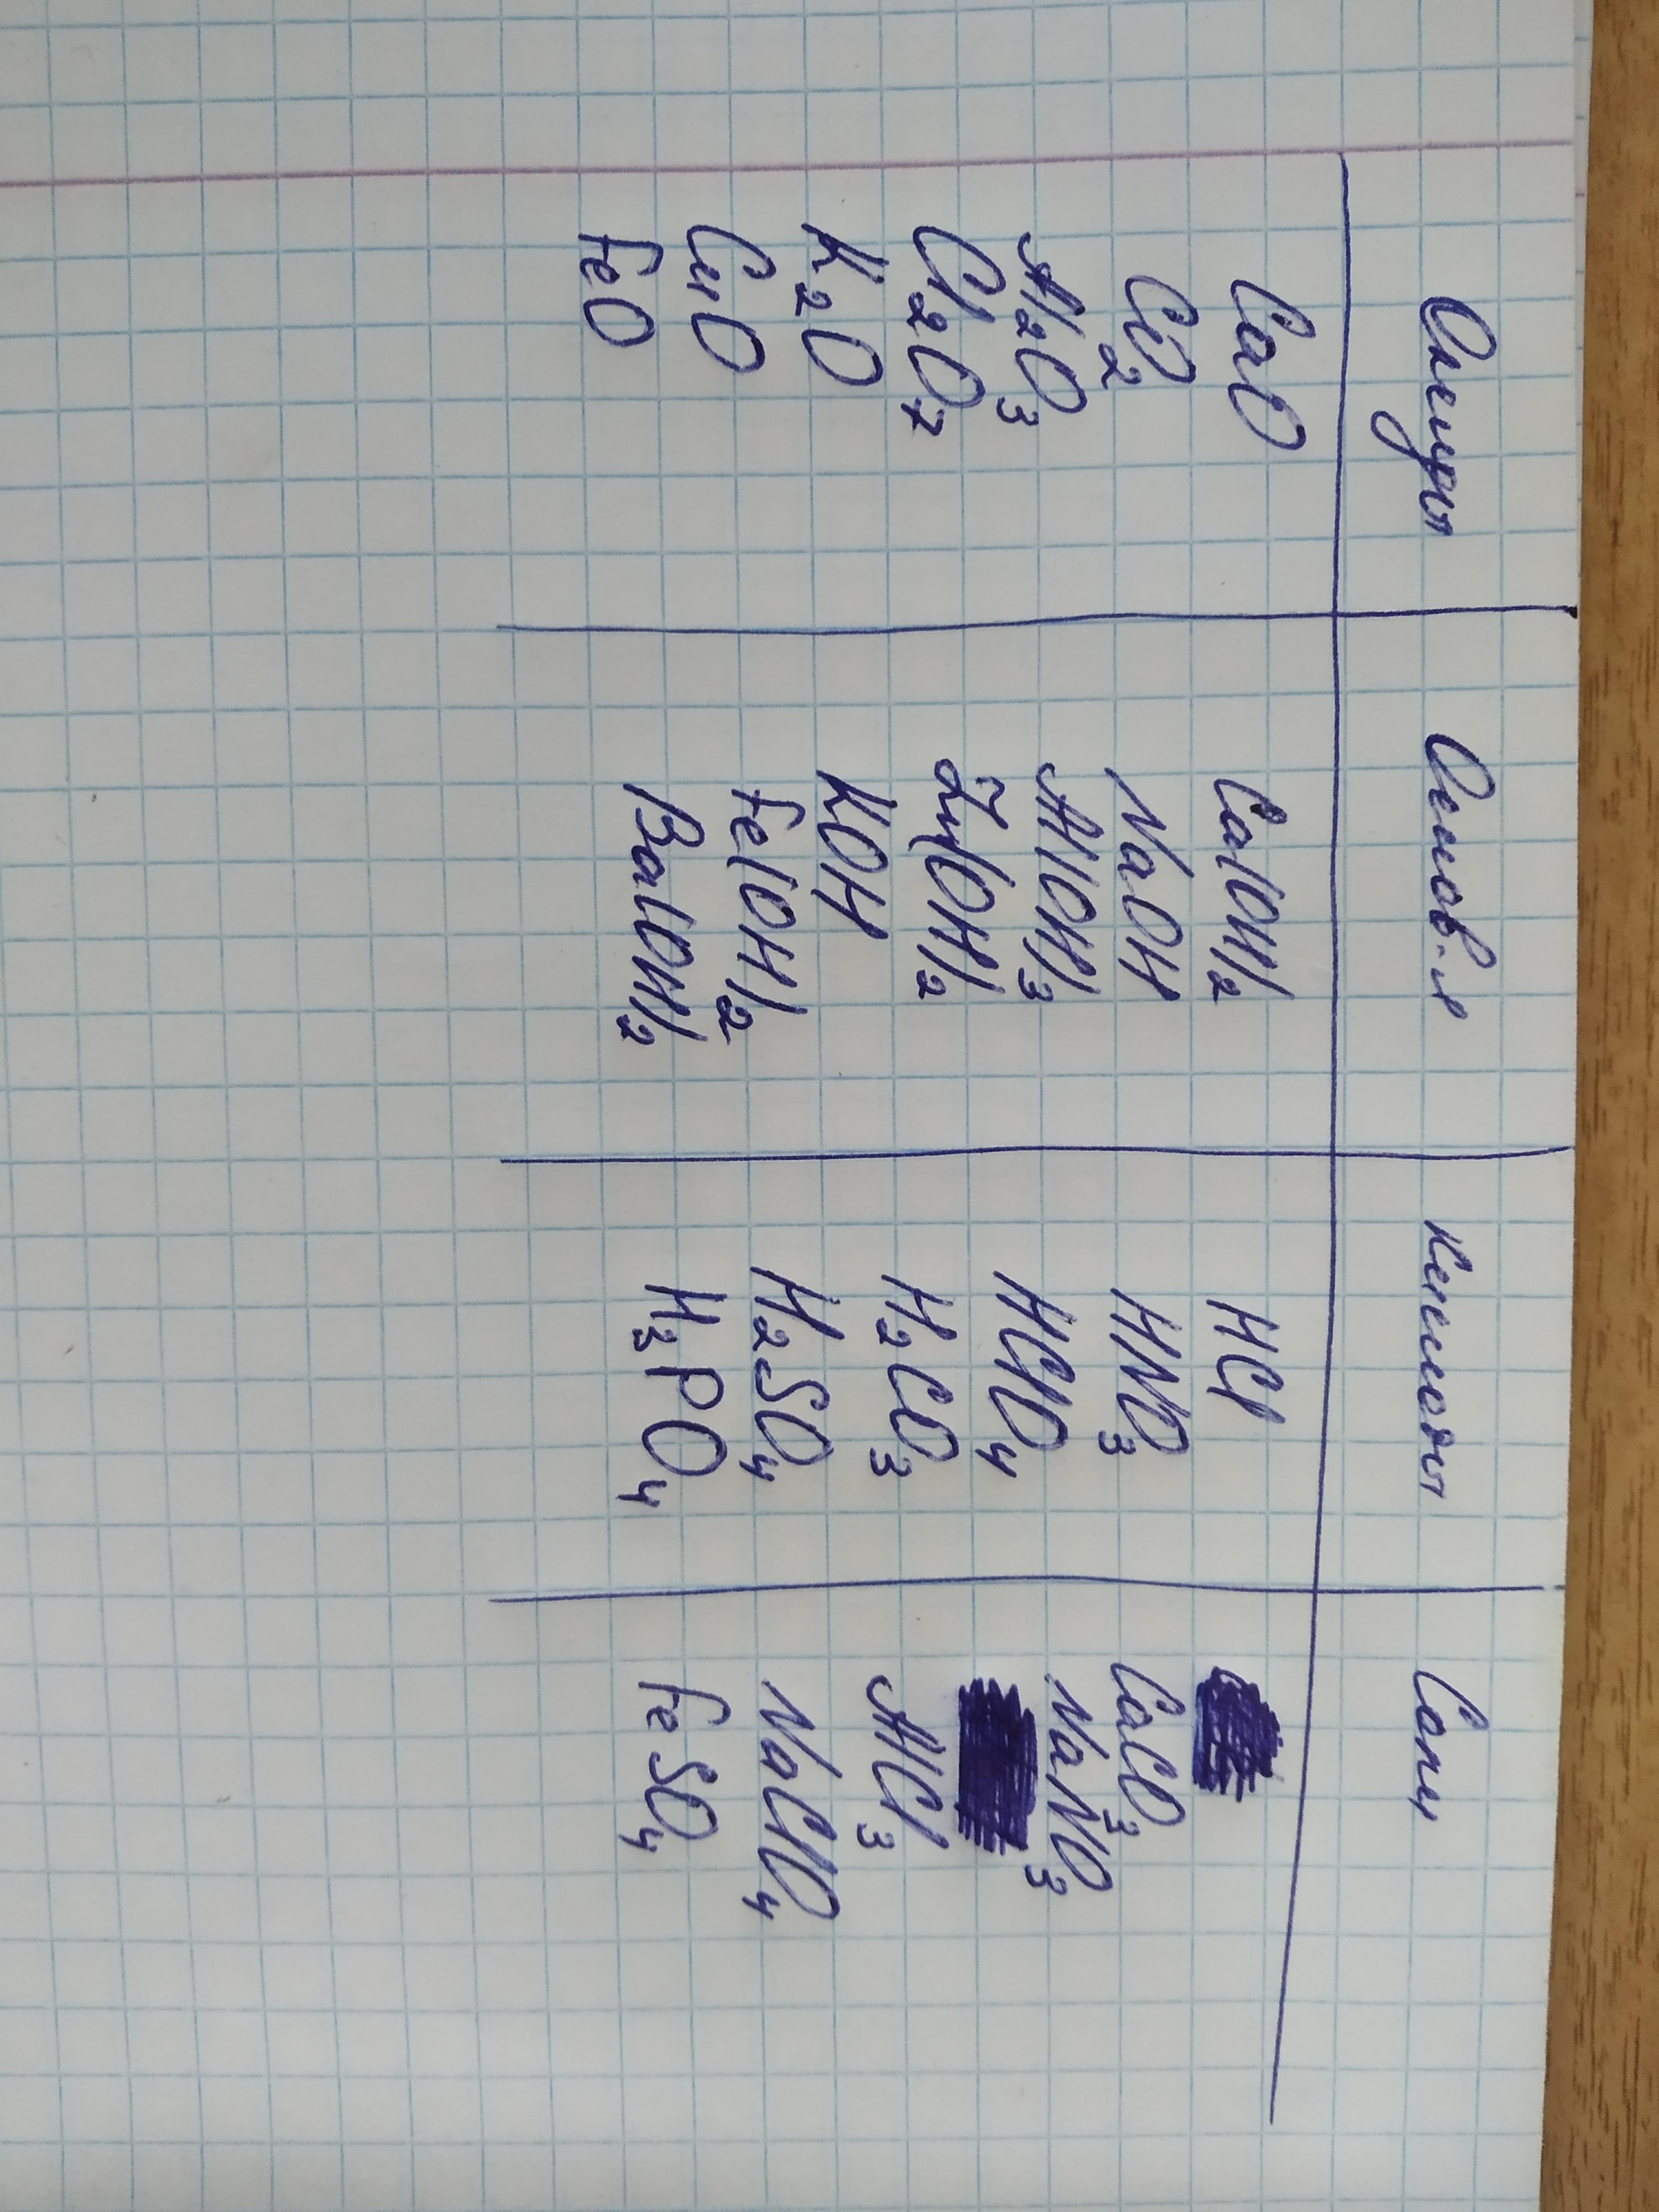 Оксиды Основ-я Кислоты Соли
CaO Ca(OH)2 HCl
CO2 NaOH HNO3 CaCO3
Al2O3 Al(OH)3 HClO4 NaNO3
Cl2O7 Zn(OH)2 H2CO3 AlCl3
K2O KOH H2SO4 NaClO4
CuO Fe(OH)2 H3PO4 FeSO4
FeO Ba(OH)2